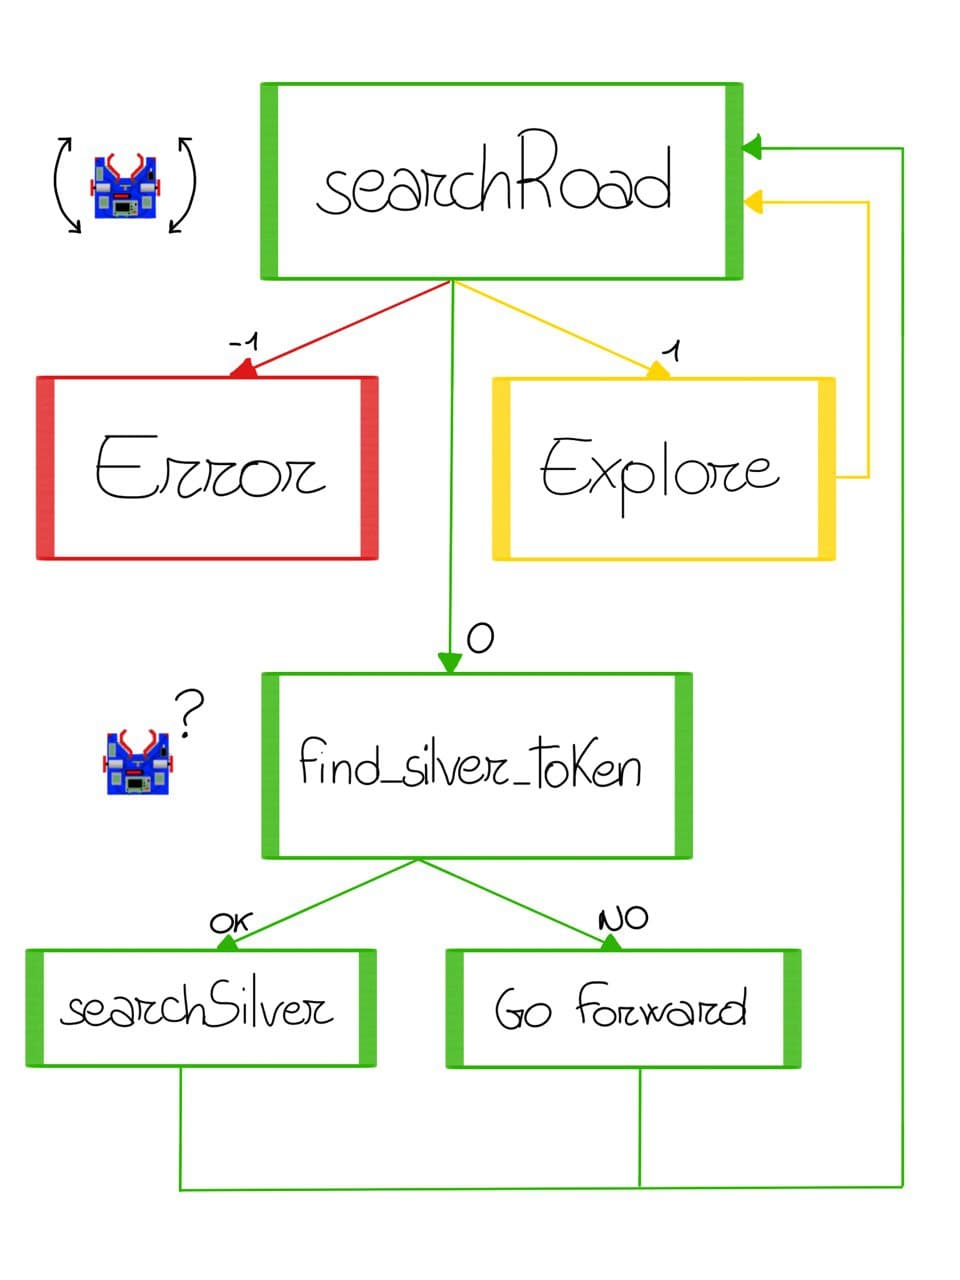 searchRoad
-1
1
Error
Explore
0
?
find_silver_token
OK
NO
searchSilver
Go Forward